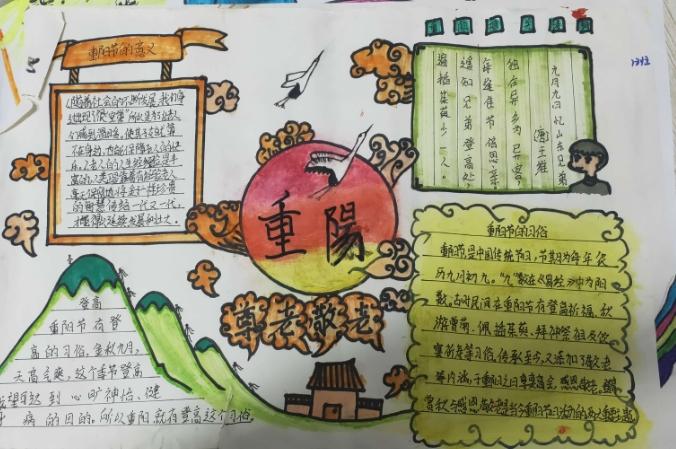 重阳节的意义
随着社会的不断发展,我们身
不在身边,也能保障老人的快
的智慧传给一代又一代,
才能得以延续发展和壮大。
重陽
尊老敬老
九月九日忆山东兄弟
[唐]王维
独在异乡为异客,
每逢佳节倍思亲。
遥知兄弟登高处,
遍插茱萸少一人。
重阳节的习俗
重阳节是中国传统节日,节期为每年农
历九月初九。“九”数在《易经》中为阳
数。古时民间在重阳节有登高祈福、秋
游赏菊、佩插茱萸、拜神祭祖及饮
宴祈寿等习俗。传承至今,又添加了敬老
等内涵,于重阳之日享宴高会,感恩敬老。登高
赏秋与感恩敬老是当今重阳节日活动的两大重要主题。
登高
重阳节有登
高的习俗,金秋九月,
天高气爽,这个季节登高
远望可起到心旷神怡、健
身病的目的。所以重阳就有登高这个习俗。